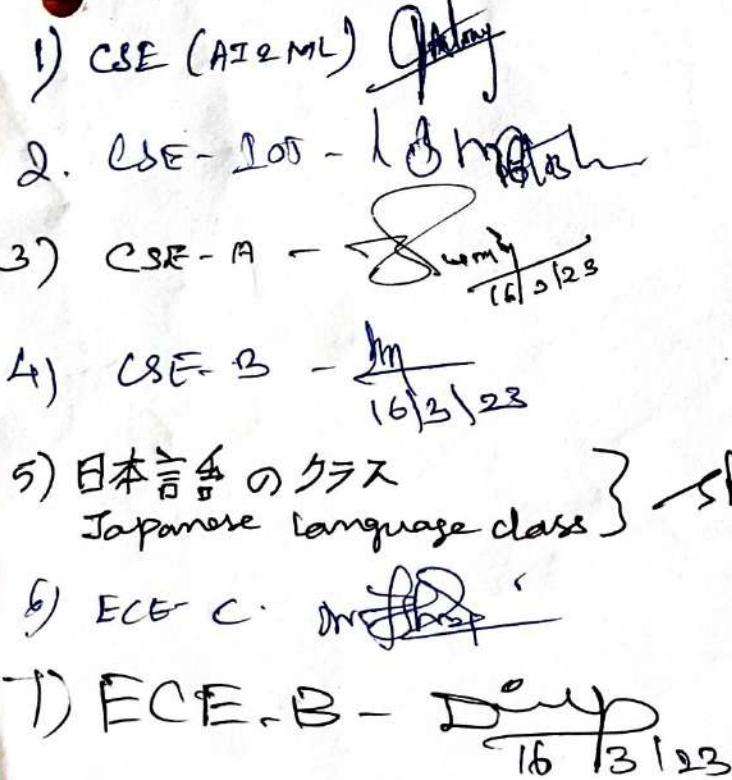 1) CSE (AI & ML)
2. CSE - IOT -
3) CSE - A - 16/3/23
4) CSE - B - 16/3/23
5) 日本言舌 の クラス
Japanese language class }
6) ECE - C.
7) ECE - B - Dilip 16/3/23